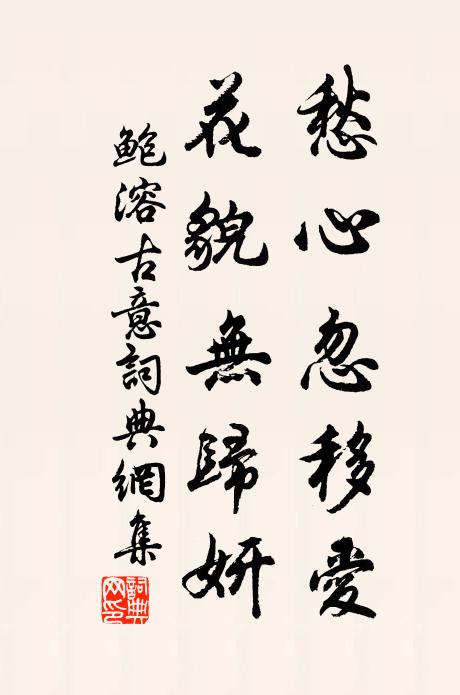 愁心忽移愛
花貌無歸妍
鮑溶古意詞典網集
詞典网印